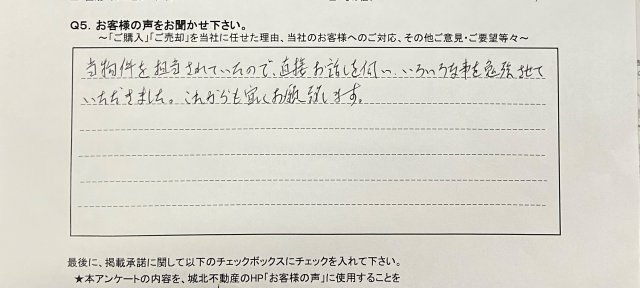 Q5. お客様の声をお聞かせ下さい。
～「ご購入」「ご売却」を当社に任せた理由、当社のお客様へのご対応、その他ご意見・ご要望等々～
当物件を担当されていたので、直接お話しを伺い、いろいろな事を勉強させて
いただきました。これからも宜しくお願い致します。
最後に、掲載承諾に関して以下のチェックボックスにチェックを入れて下さい。
★本アンケートの内容を、城北不動産のHP「お客様の声」に使用することを